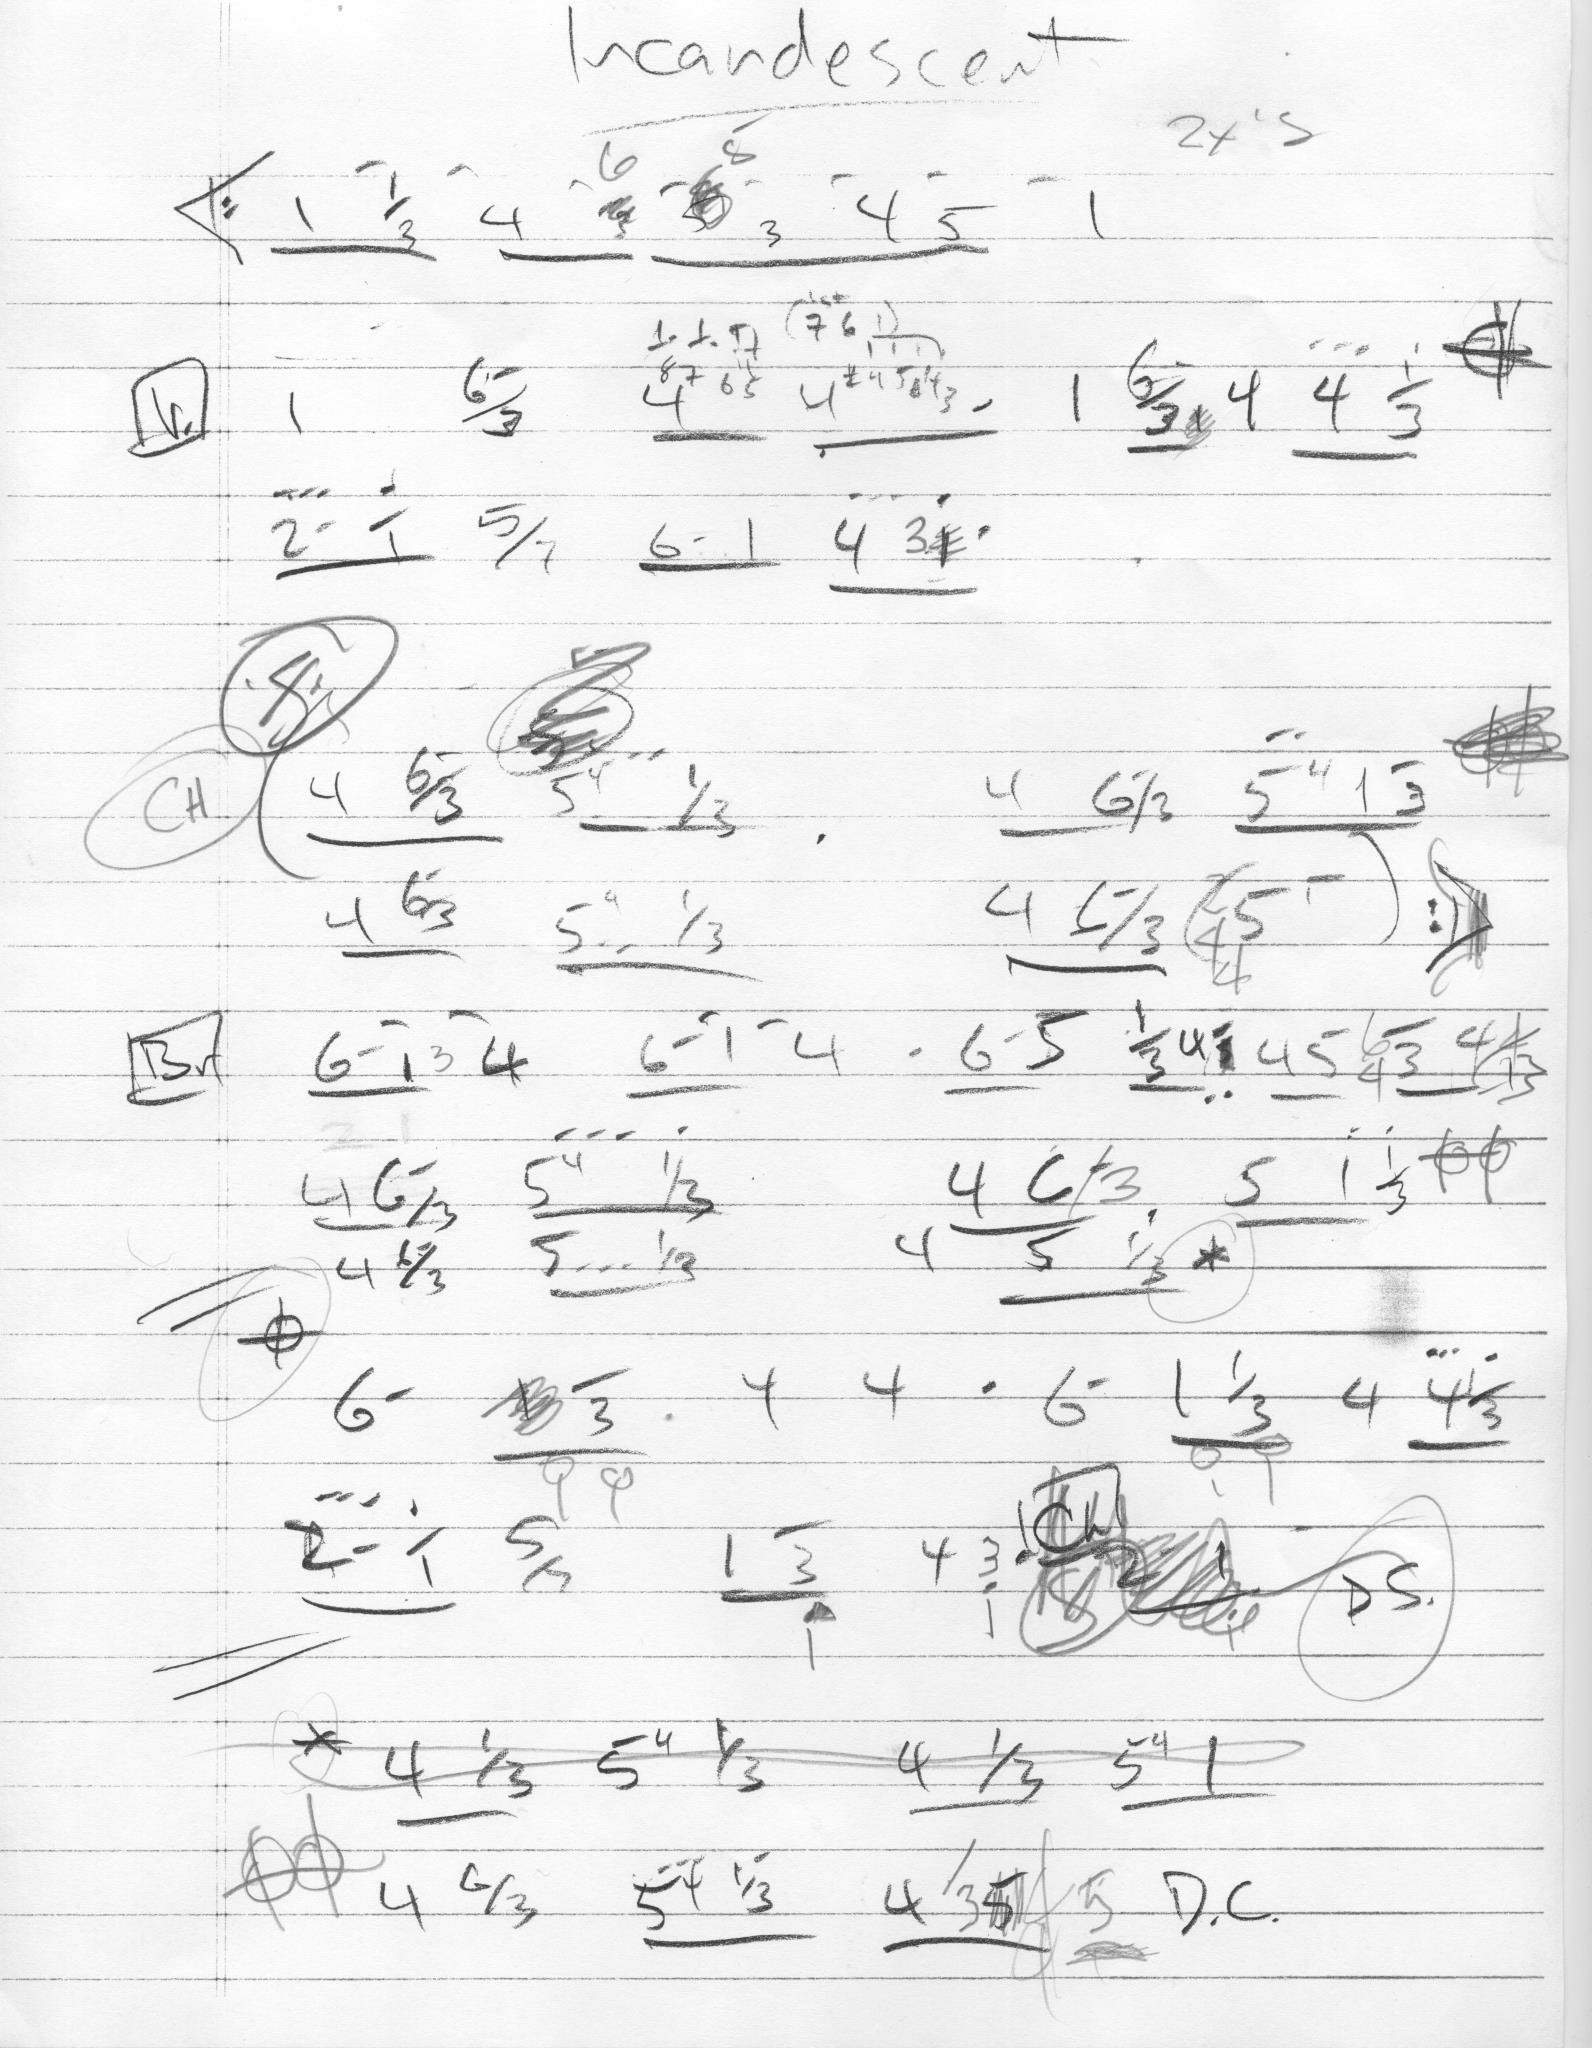 Incandescent
2x's
1 1/3 4 6 3 4 5 1
V. 1 6-/3 4 4 1 6-/3 4 4 1/3
2- 1/1 5/7 6- 1 4 3
CH 4 6-/3 5⁴ 1/3 4 6-/3 5⁴ 1 3
4 6-/3 5⁴ 1/3 4 6-/3 5
Br 6- 1 3 4 6- 1 4 6- 5 1/3 4 4 5 6- 3 4
4 6-/3 5⁴ 1/3 4 6-/3 5 1 1/3
4 6-/3 5 1/3 4 5 1/3 *
6- 3 4 4 6- 1 1/3 4 4 1/3
2- 1/1 5/7 1 3 4 3 Ch D.S.
* 4 1/3 5⁴ 1/3 4 1/3 5⁴ 1
4 6/3 5⁴ 1/3 4 1/3 5 D.C.